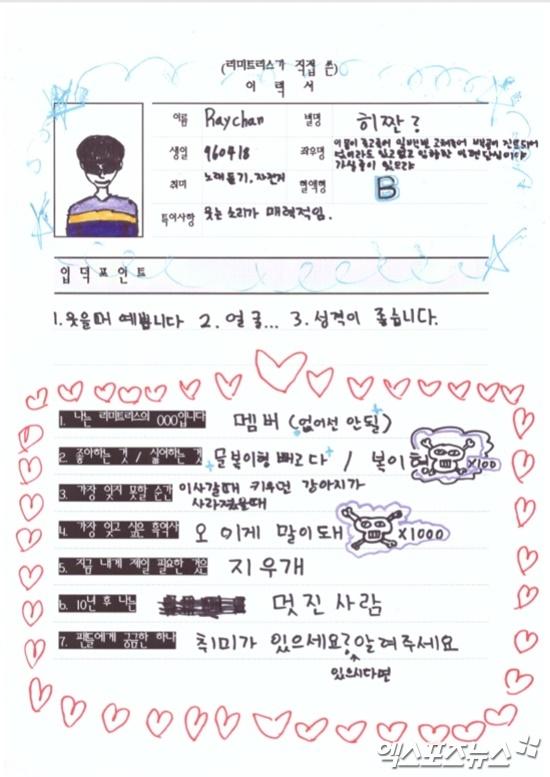 (리미트리스가 직접 쓴)
이 력 서
이름 Raychan 별명 히짠?
생일 960418 좌우명 이몸이 죽고죽어 일백번 고쳐죽어 백골이 진토되어
넋이라도 있고없고 임향한 일편단심이야
가실줄이 있으랴
취미 노래듣기, 자전거 혈액형 B
특이사항 웃는 소리가 매력적임.
입덕포인트
1. 웃을때 예쁩니다 2. 얼굴... 3. 성격이 좋습니다.
1. 나는 리미트리스의 OOO입니다 멤버 (없어선 안될)
2. 좋아하는 것 / 싫어하는 것 문복이형 빼고 다 / 복이형 X100
3. 가장 잊지 못할 순간 이사갈때 키우던 강아지가
사라졌을때
4. 가장 잊고 싶은 흑역사 오 이게 말이돼 X1000
5. 지금 내게 제일 필요한 것은 지우개
6. 10년 후 나는 멋진사람
7. 팬들에게 궁금한 하나 취미가 있으세요? 알려주세요
있으시다면
엑스포츠뉴스